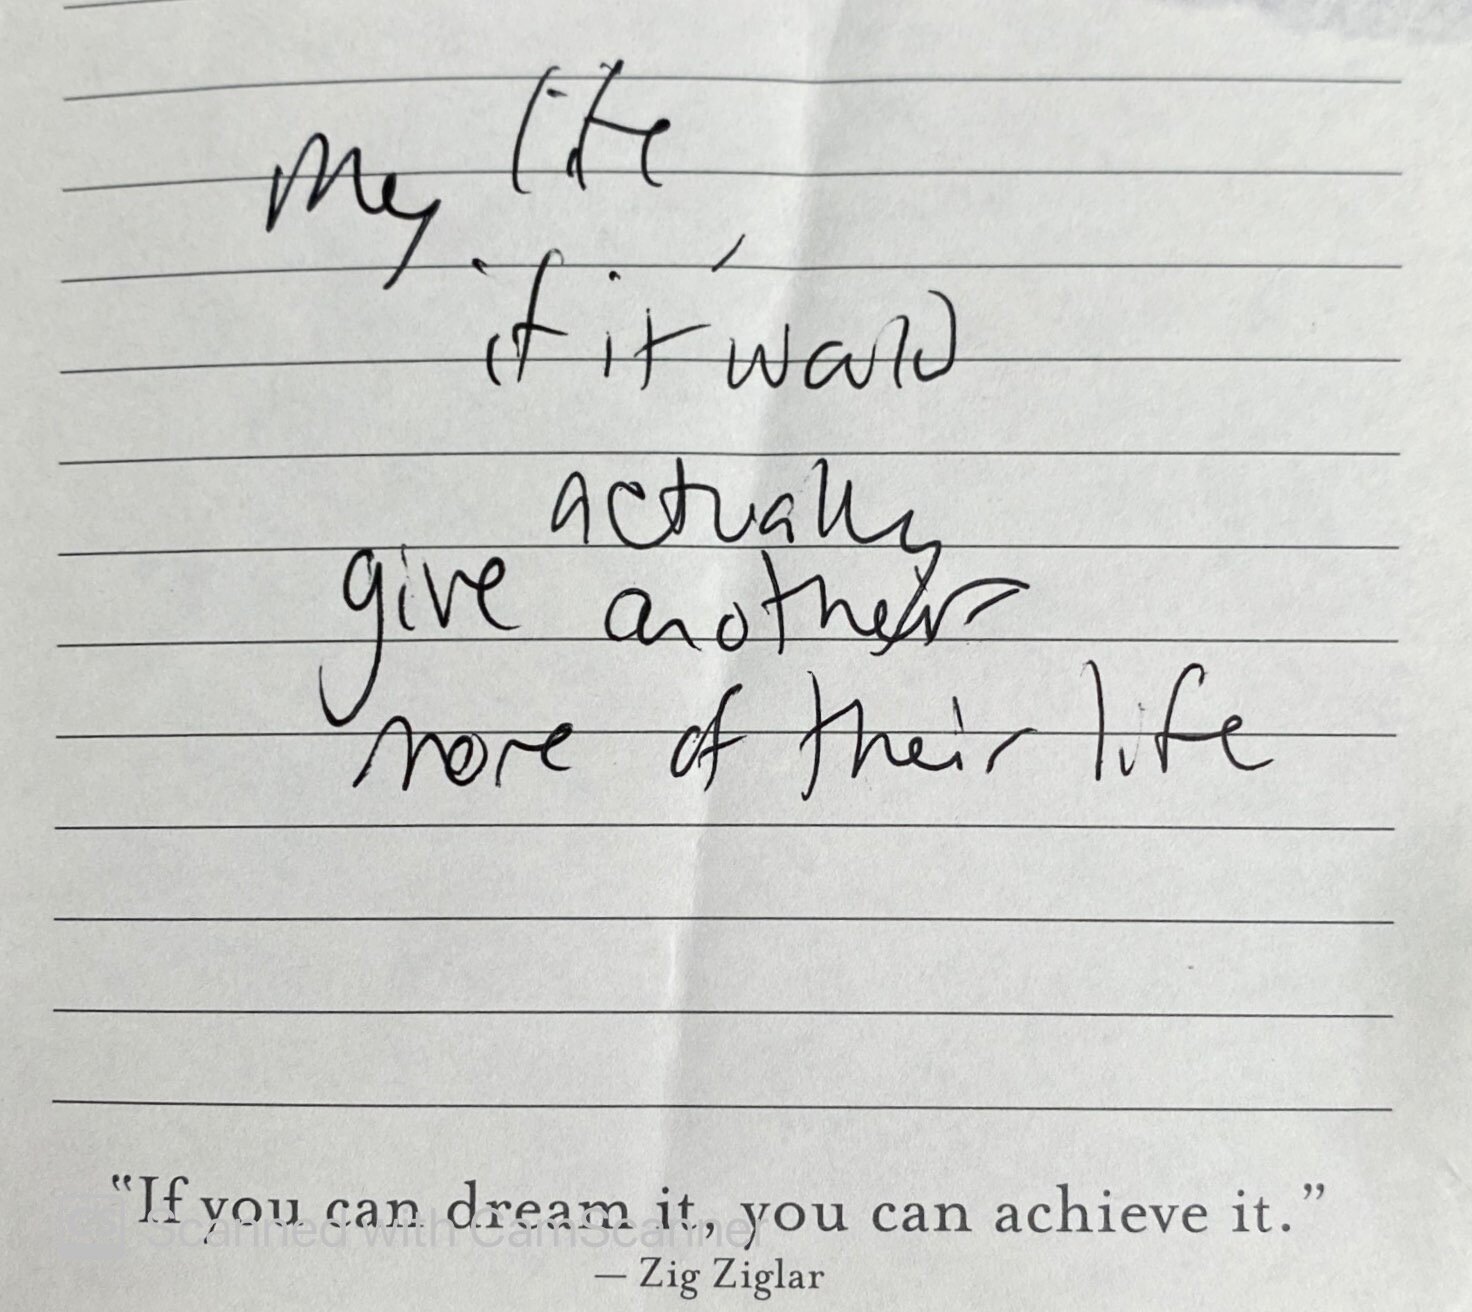 My life
if it would
actually
give another
more of their life
"If you can dream it, you can achieve it."
Scanned with CamScanner
— Zig Ziglar